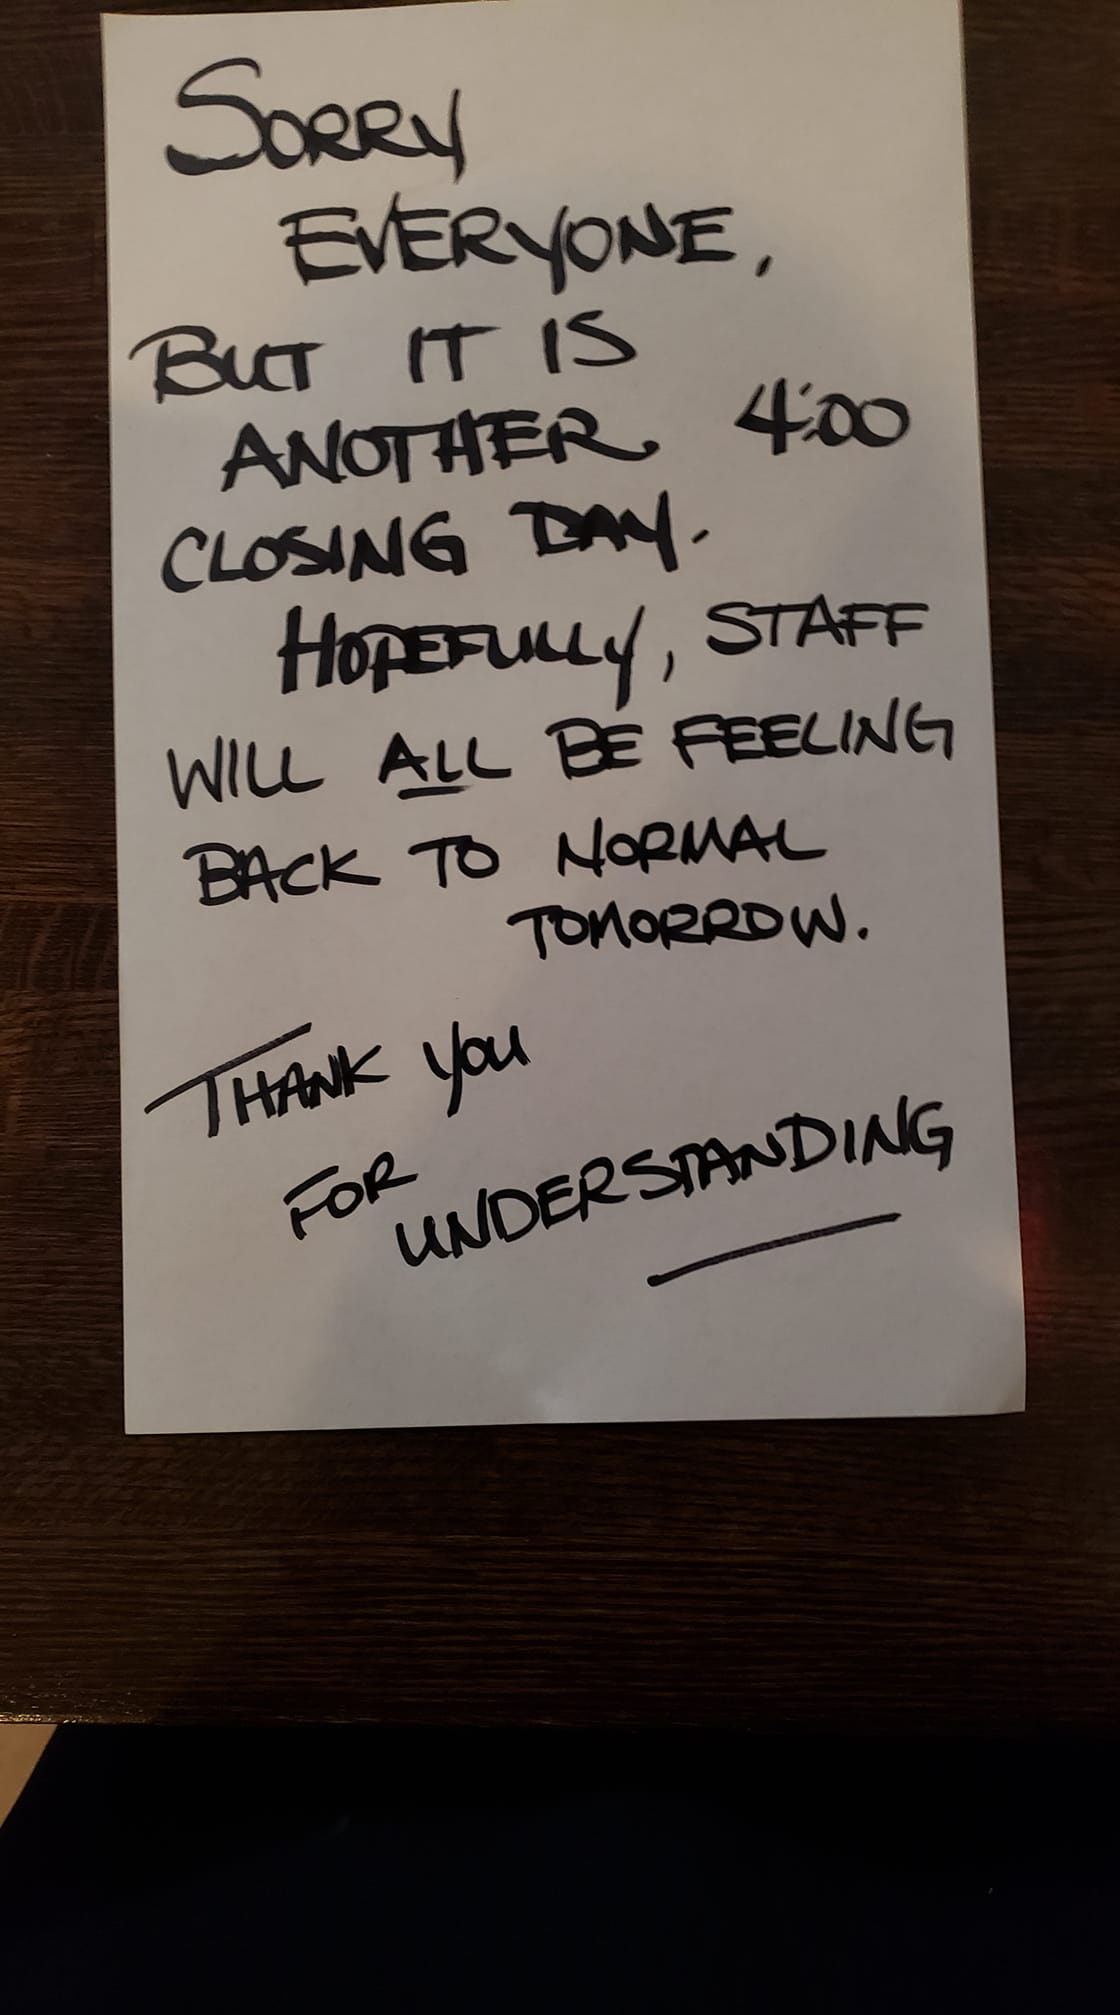 SORRY
EVERYONE,
BUT IT IS
ANOTHER 4:00
CLOSING DAY.
HOPEFULLY, STAFF
WILL ALL BE FEELING
BACK TO NORMAL
TOMORROW.
THANK YOU
FOR
UNDERSTANDING